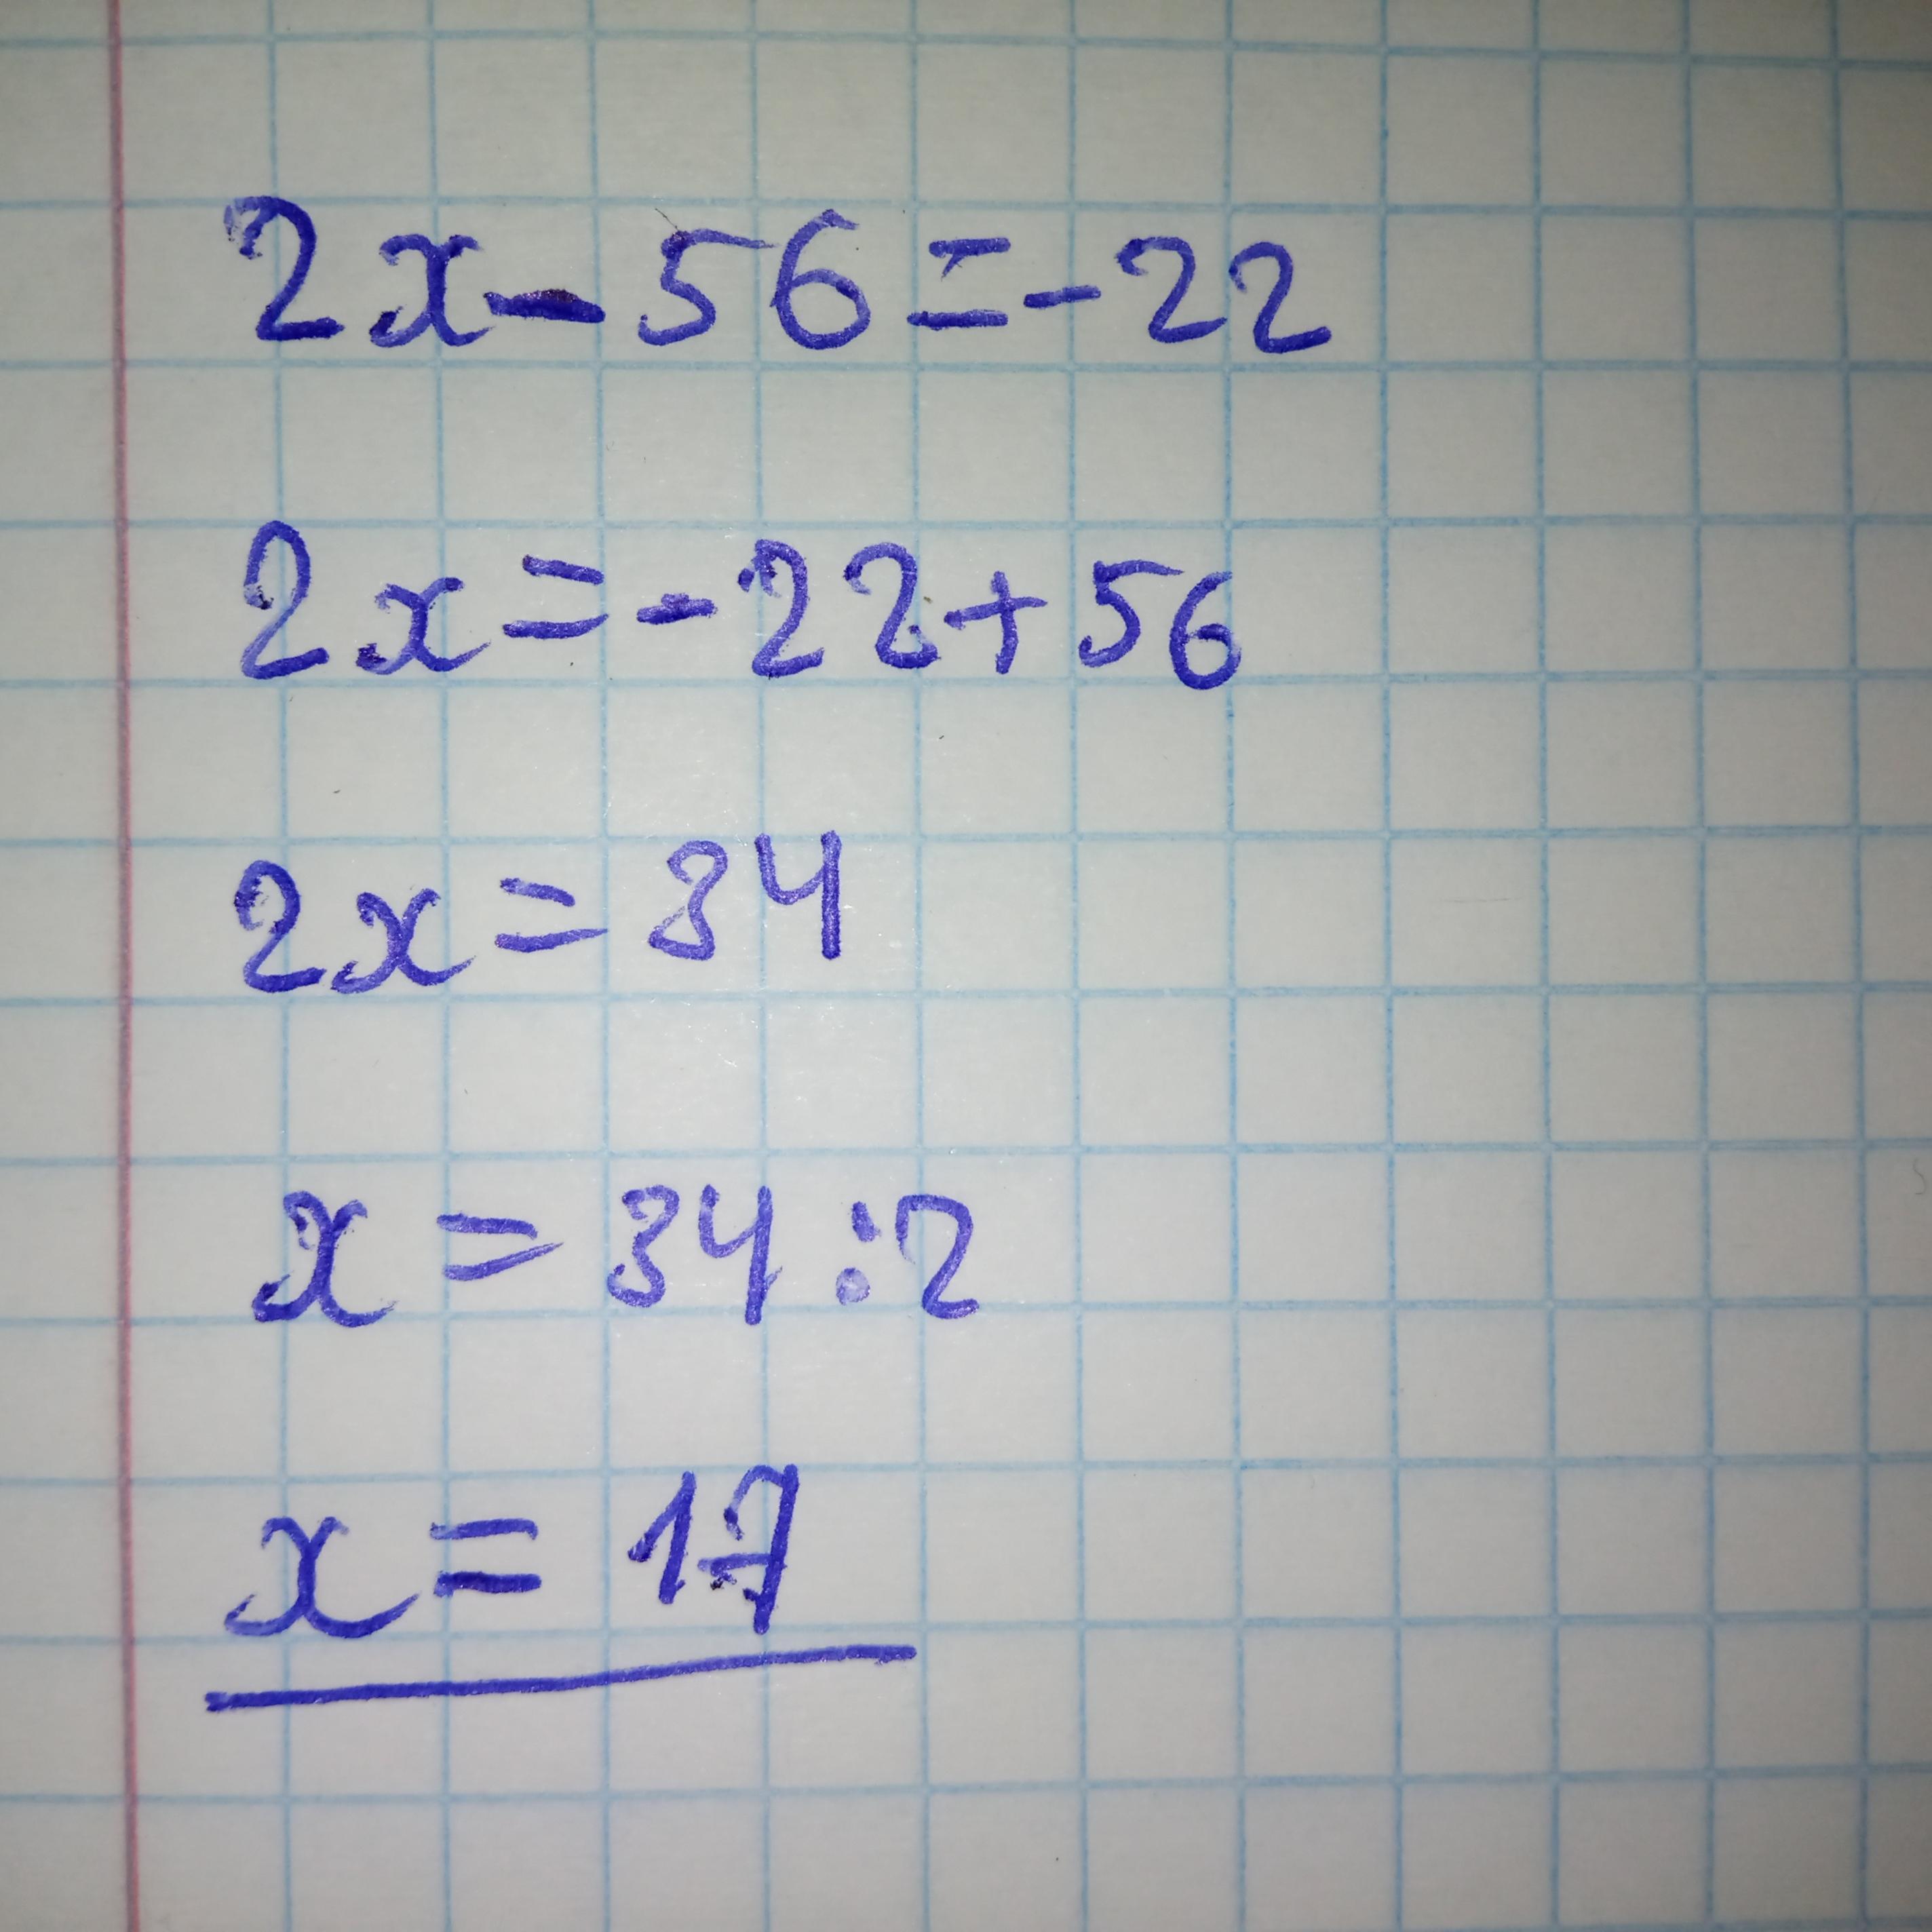 2x-56=-22
2x=-22+56
2x=34
x=34:2
x=17